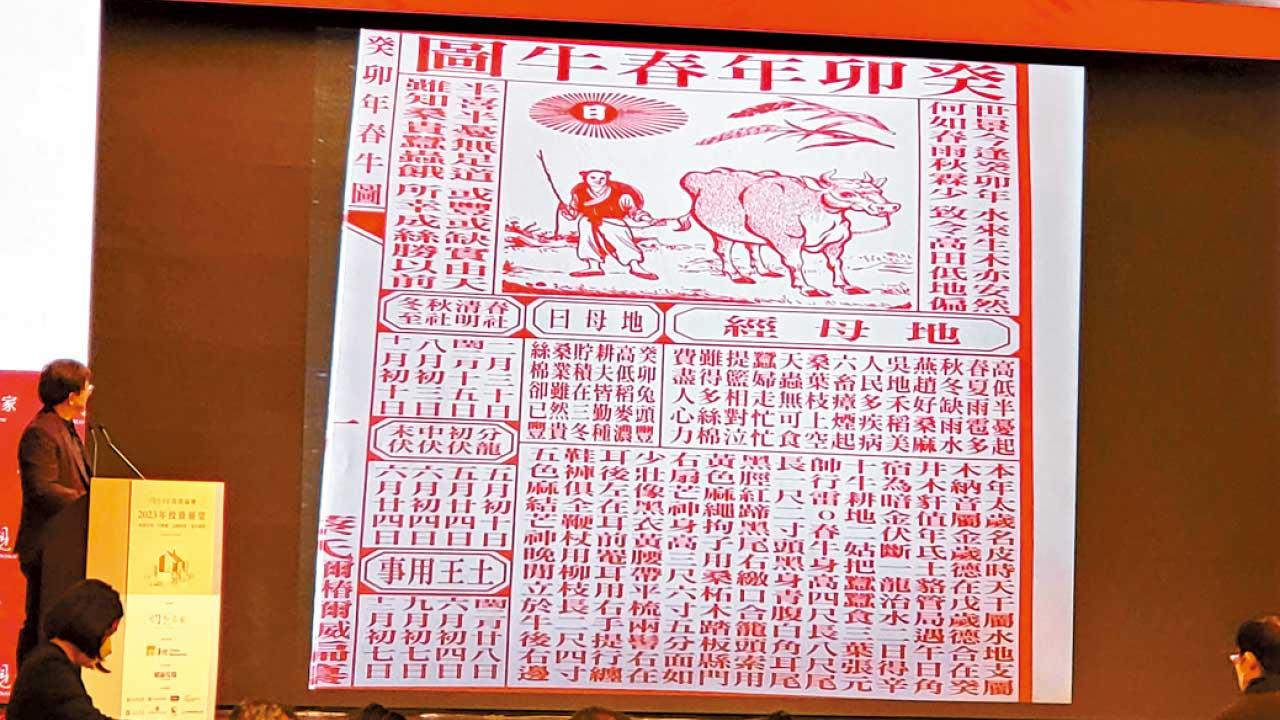 癸卯年春牛圖
癸卯年春牛圖
世景今逢癸卯年 水來生木亦安然
何如春雨秋霖少 致令高田低地偏
日
半喜半憂無足道 或豐或缺實由天
難知桑貴蠶蟲餓 所幸成絲勝以前
地母經
高低半憂起
春夏雨雹多
秋冬缺雨水
燕趙好桑麻
吳地禾稻美
人民多疾病
六畜瘴煙起
桑葉枝上空
天蟲無可食
蠶婦走忙忙
提籃相對泣
雖得多絲棉
費盡人心力
地母曰
癸卯兔頭豐
高低稻麥濃
耕夫皆勤種
貯積在三冬
桑業雖然貴
絲棉卻已豐
春社
清明
秋社
冬至
二月三十日
閏二月十五日
分龍
初伏
中伏
末伏
五月初十日
五月廿四日
六月初四日
六月廿四日
土王用事
閏二月廿八日
六月初四日
九月初七日
十二月初七日
本年太歲名皮時天干屬水地支屬
木納音屬金歲德在戊歲德合在癸
井木豻值年氐土貉管局遇午日角
宿為暗金伏斷一龍治水二日得辛
十牛耕地二姑把蠶蠶食三葉張元
帥行雷0春牛身高四尺長八尺尾
長一尺二寸頭黑身青腹白角耳尾
黑脛紅蹄黑尾右繳口合籠頭索用
黃色麻繩拘子用桑柘木踏板縣門
右扇芒神身高三尺六寸五分面如
少壯像黑衣黃腰帶平梳兩髻右在
耳後左在耳前罨耳用右手提行纏
鞋褲俱全鞭杖用柳枝長二尺四寸
五色麻結芒神晚閒立於牛後右邊
一
家
2023年投資展望